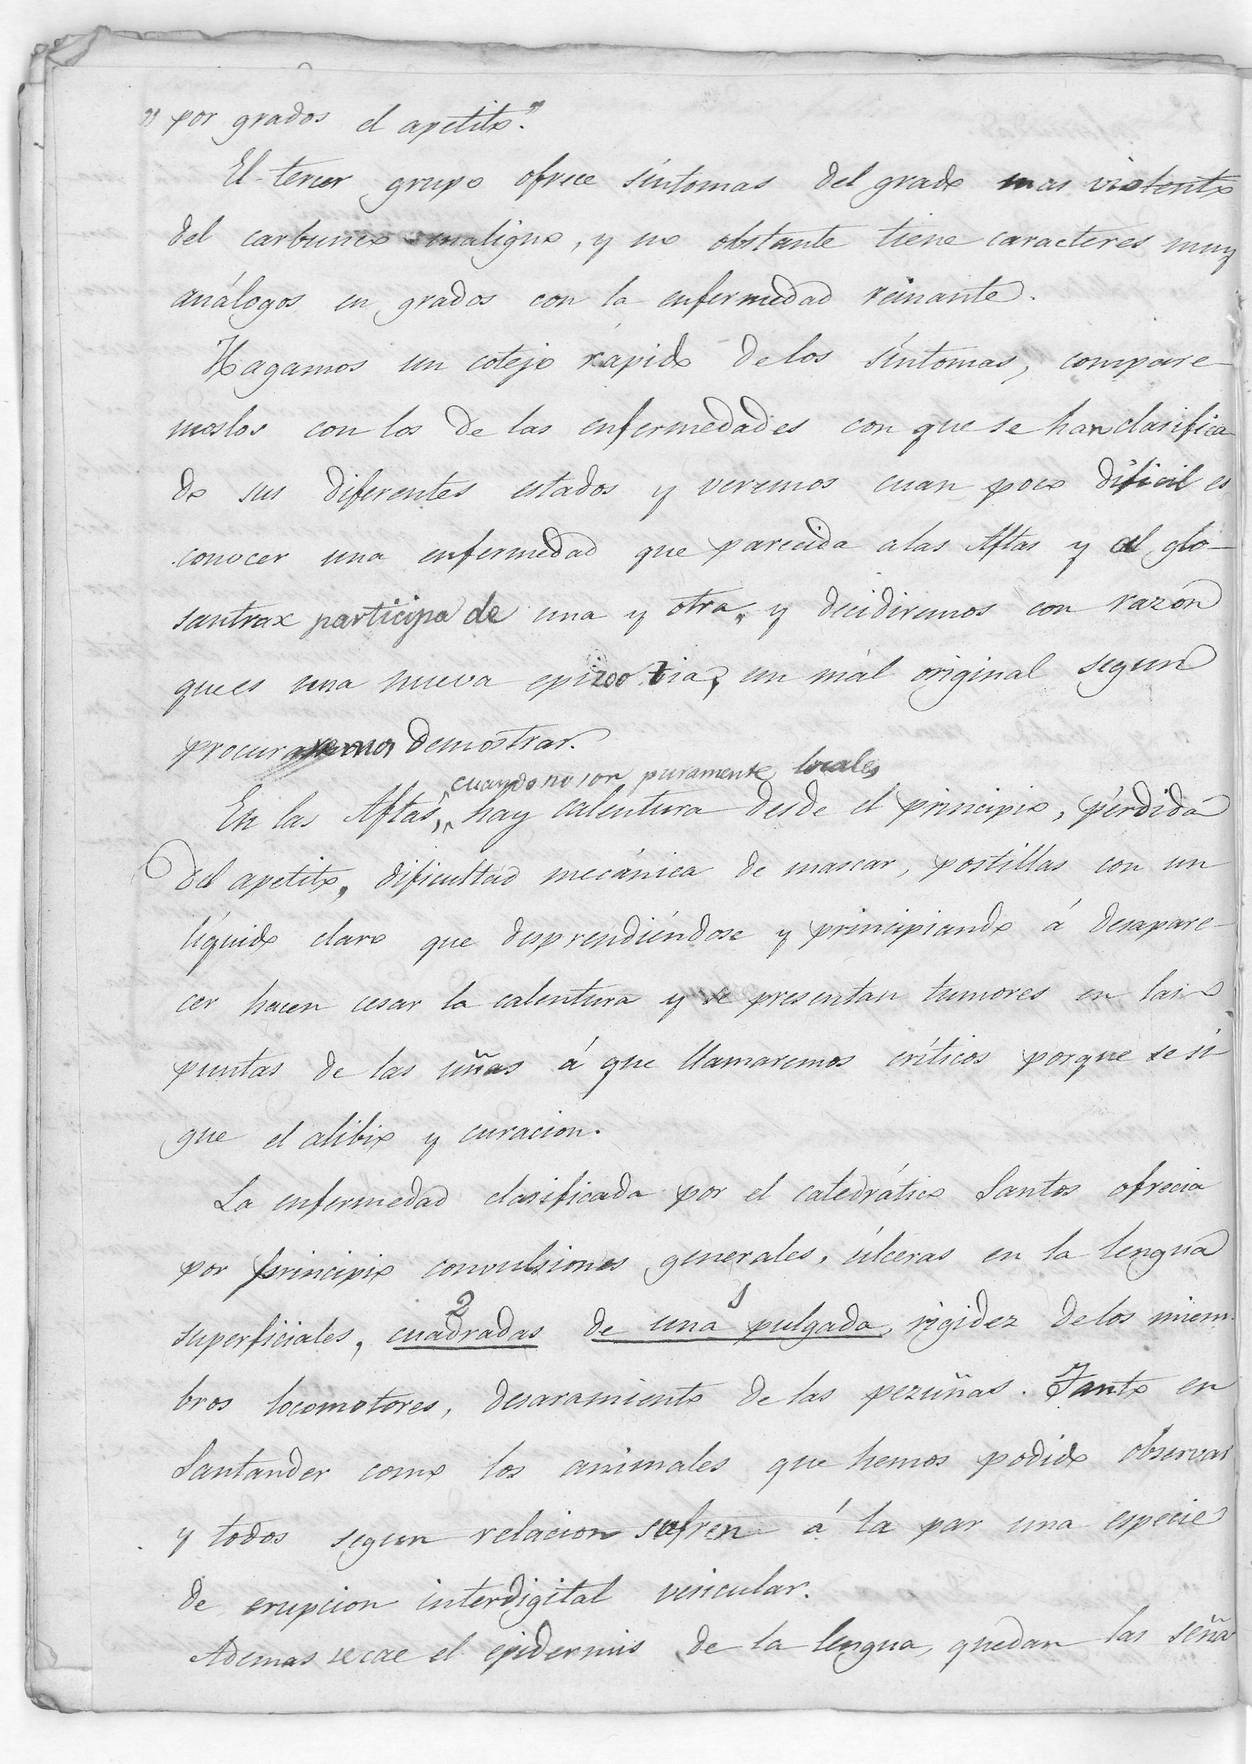 " por grados el apetito."
El tercer grupo ofrece síntomas del grado mas violento
del carbunco maligno, y no obstante tiene caracteres muy
análogos en grados con la enfermedad reinante.
Hagamos un cotejo rápido de los síntomas, compare-
moslos con los de las enfermedades con que se han clasifica-
do sus diferentes estados y veremos cuan poco dificil es
conocer una enfermedad que parecida a las Aftas y al glo-
santrax participa de una y otra, y decidiremos con razon
que es una nueva epizootia, un mál original segun
procuraremos demostrar.
cuando no son puramente locales
En las Aftas, hay calentura desde el principio, pérdida
del apetito, dificultad mecánica de mascar, postillas con un
líquido claro que desprendiéndose y principiando á desapare-
cer hacen cesar la calentura y se presentan tumores en las
puntas de las uñas á que llamaremos críticos porque se si-
gue el alibio y curacion.
La enfermedad clasificada por el catedrático Santos ofrecia
por principio convulsiones generales, úlceras en la lengua
2 1
superficiales, cuadradas de una pulgada, rigidez de los miem-
bros locomotores, desaramiento de las pezuñas. Tanto en
Santander como los animales que hemos podido observar
y todos segun relacion sufren á la par una especie
de erupcion interdigital vesicular.
Ademas se cae el epidermis de la lengua, quedan las seña